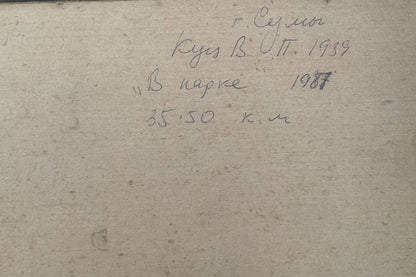 г. Сумы
Куц В. П. 1939
„В парке" 1987
35.50 к.м